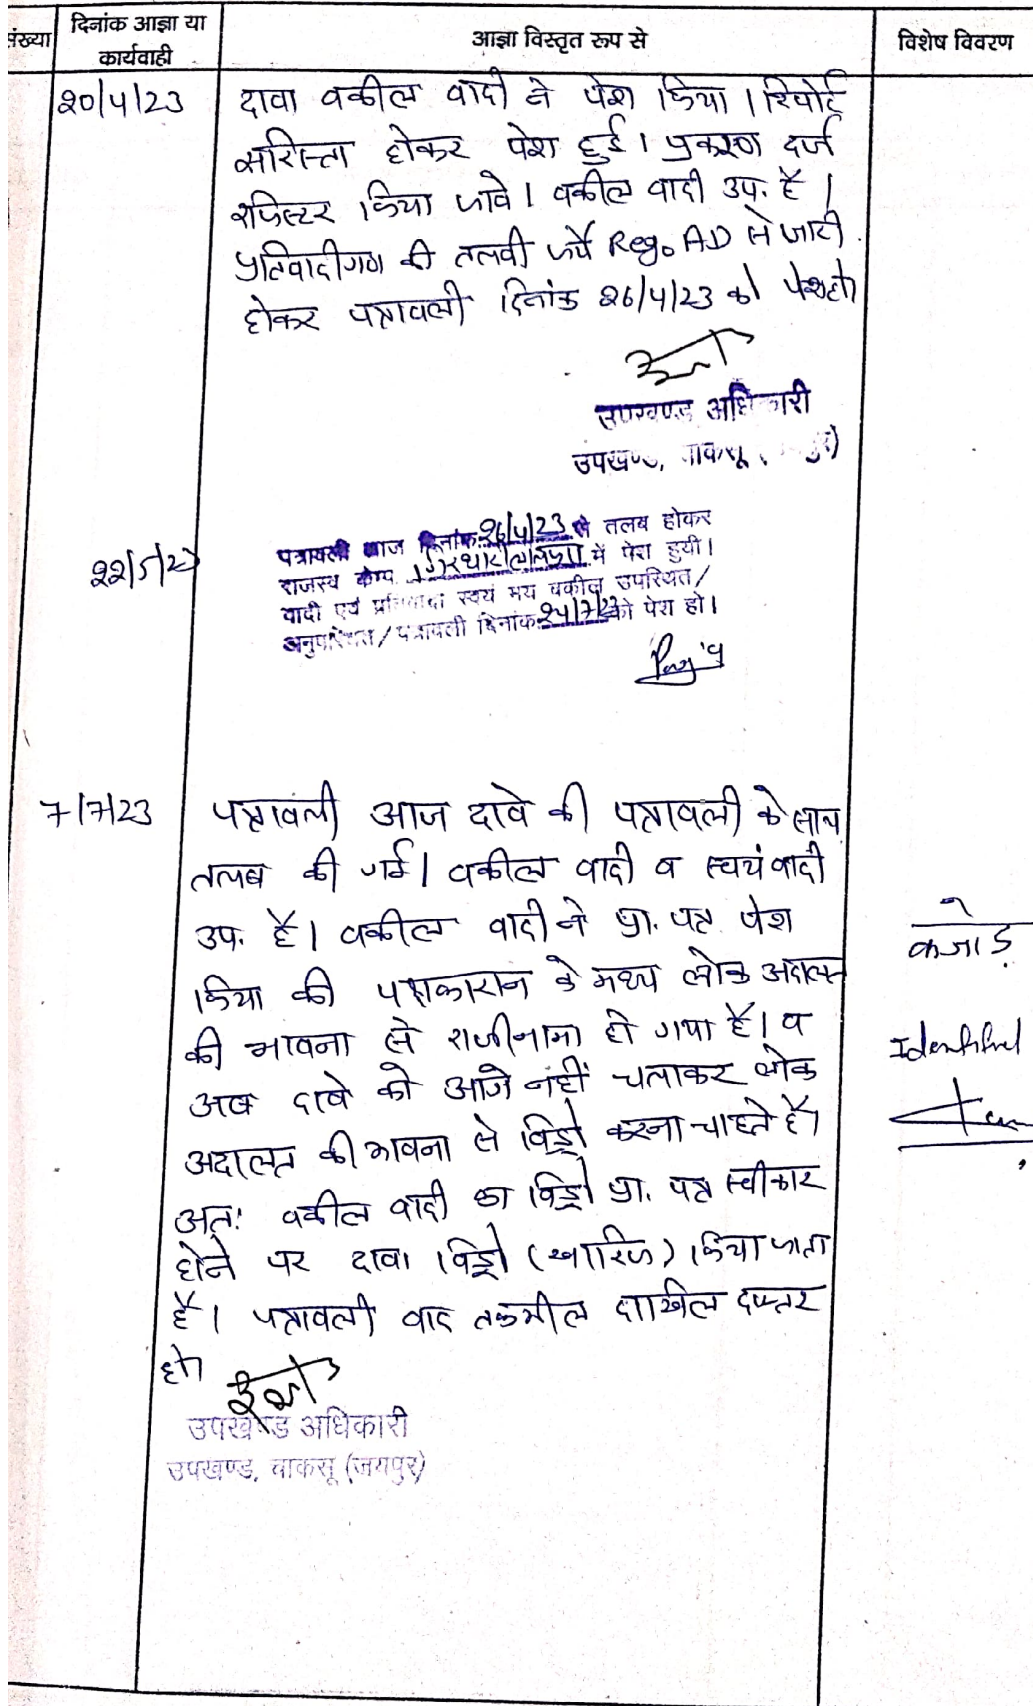 संख्या
दिनांक आज्ञा या
कार्यवाही
आज्ञा विस्तृत रूप से
विशेष विवरण
20/4/23
दावा वकील वादी ने पेश किया । रिपोर्ट
सरिस्ता होकर पेश हुई। प्रकरण दर्ज
रजिस्टर किया जावे। वकील वादी उप. है ।
प्रतिवादीगण की तलवी जर्ये Reg. AD से जारी
होकर पत्रावली दिनांक 26/4/23 को पेश हो
उपखण्ड अधिकारी
उपखण्ड, चाकसू
22/5/23
पत्रावली आज दिनांक 26/4/23 से तलब होकर
राजस्व केम्प में पेश हुयी।
वादी एवं प्रतिवादी स्वयं मय वकील उपस्थित/
अनुपस्थित/पत्रावली दिनांक 24/7/23 को पेश हो।
7/7/23
पत्रावली आज दावे की पत्रावली के साथ
तलब की गई। वकील वादी व स्वयं वादी
उप. है। वकील वादी ने प्रा. पत्र पेश
किया की पक्षकारान के मध्य लोक अदालत
की भावना से राजीनामा हो गया है। व
अब दावे को आगे नहीं चलाकर लोक
अदालत की भावना से विड्रो करना चाहते है।
अतः वकील वादी का विड्रो प्रा. पत्र स्वीकार
होने पर दावा विड्रो (खारिज) किया जाता
है। पत्रावली वाद तकमील दाखिल दफ्तर
हो।
उपखण्ड अधिकारी
उपखण्ड, चाकसू (जयपुर)
कजोड़
Identified